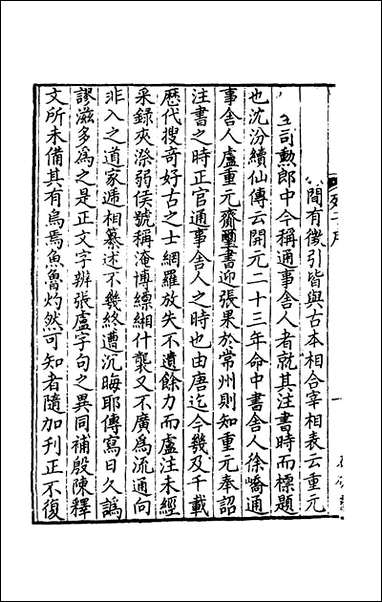 間有徵引皆與古本相合宰相表云重元
司勲郎中今稱通事舍人者就其注書時而標題
也沈汾續仙傳云開元二十三年命中書舍人徐嶠通
事舍人盧重元齎璽書迎張果於常州則知重元奉詔
注書之時正官通事舍人之時也由唐迄今幾及千載
歴代搜奇好古之士網羅放失不遺餘力而盧注未經
采録夾漈弱侯號稱淹博縹緗什襲又不廣爲流通向
非入之道家遞相纂述不幾終遭沉晦耶傳寫日久譌
謬滋多爲之是正文字辨張盧字句之異同補殷陳釋
文所未備其有烏焉魚魯灼然可知者隨加刊正不復